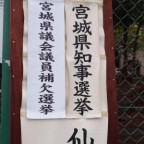 宮城県知事選挙
宮城県議会議員補欠選挙
仙